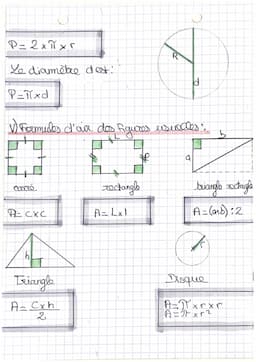 P = 2 x π x r
Le diamètre d est:
P = π x d
R
d
V) Formules d'air des figures usuelles:
L
l
b
a
carré
rectangle
triangle rectangle
A = c x c
A = L x l
A = (a x b) : 2
h
r
Triangle
Disque
A = C x h
2
A = π x r x r
A = π x r²